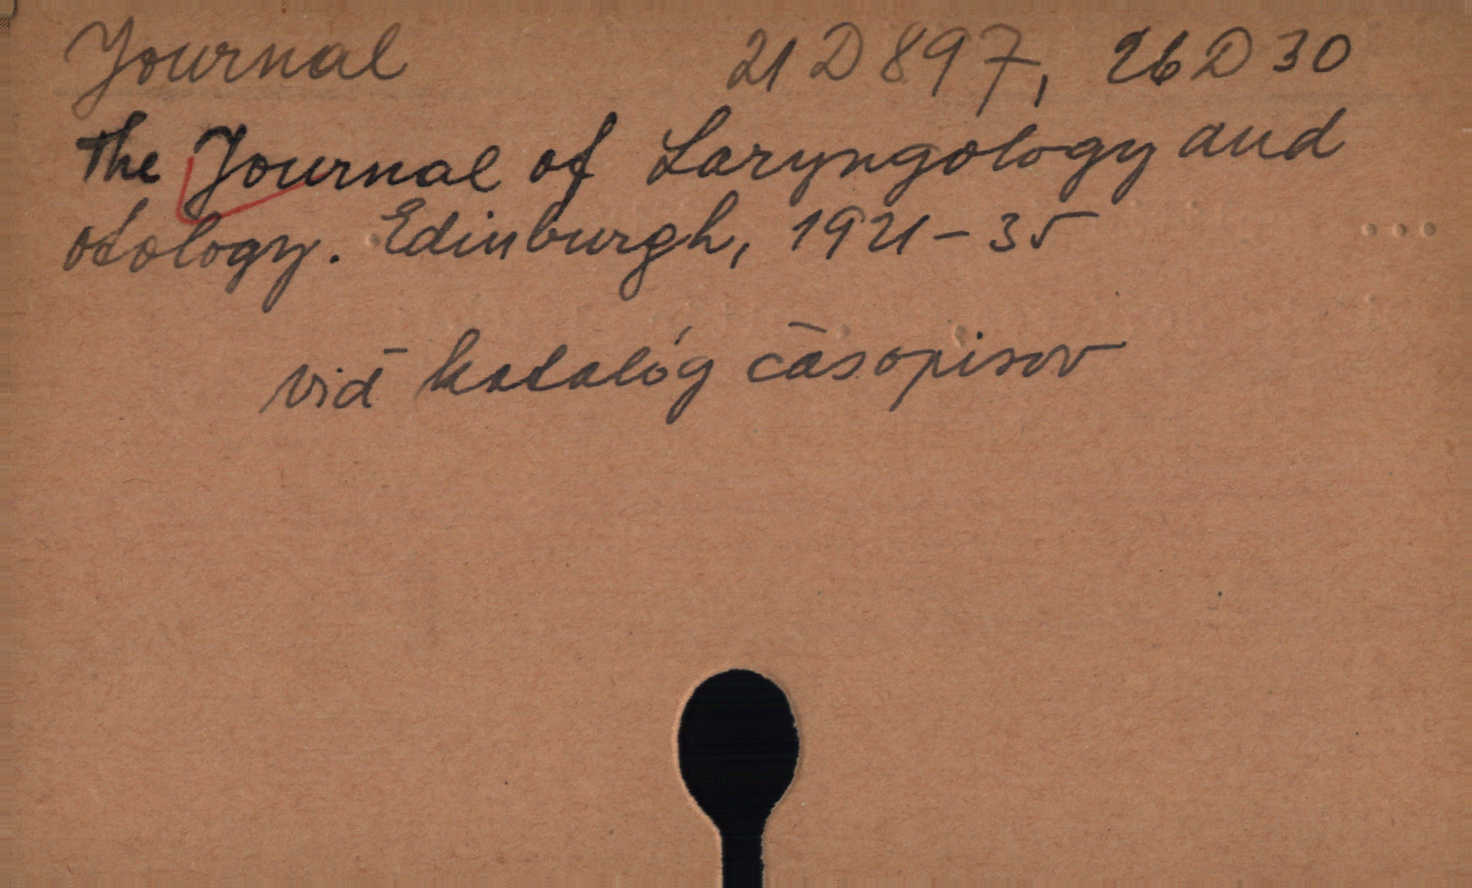 Journal 21 D 897, 26 D 30
The Journal of Laryngology and
otology. Edinburgh, 1921-35
viď katalóg časopisov